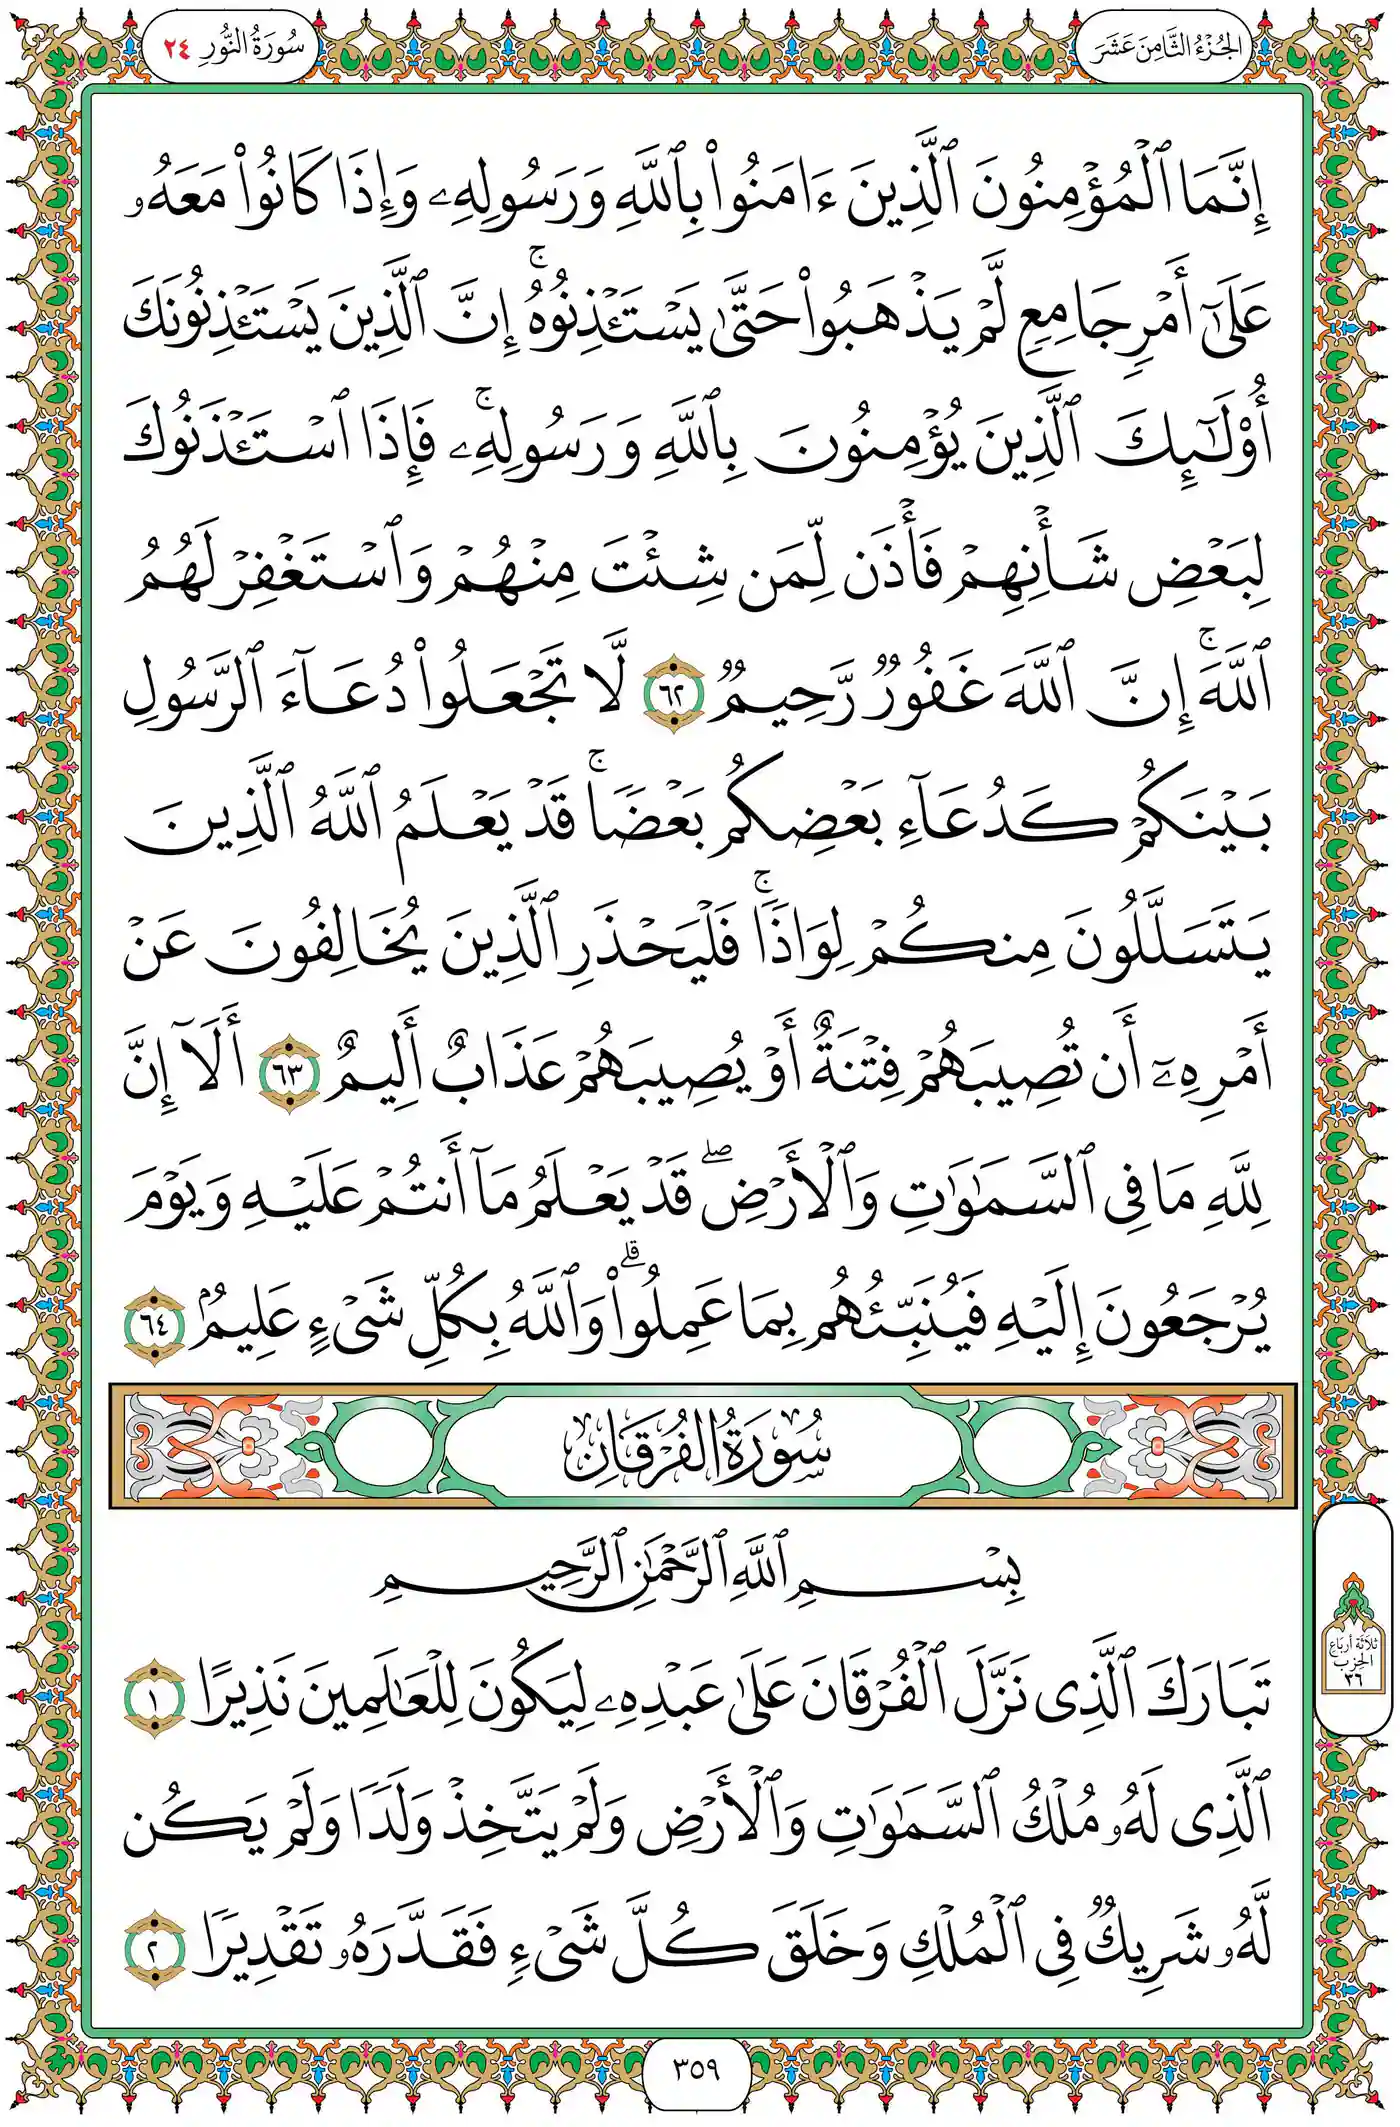 الجُزْءُ الثَّامِنَ عَشَرَ
سُورَةُ النُّورِ ٢٤
إِنَّمَا ٱلْمُؤْمِنُونَ ٱلَّذِينَ ءَامَنُوا۟ بِٱللَّهِ وَرَسُولِهِۦ وَإِذَا كَانُوا۟ مَعَهُۥ
عَلَىٰٓ أَمْرٍ جَامِعٍ لَّمْ يَذْهَبُوا۟ حَتَّىٰ يَسْتَـْٔذِنُوهُ ۚ إِنَّ ٱلَّذِينَ يَسْتَـْٔذِنُونَكَ
أُو۟لَـٰٓئِكَ ٱلَّذِينَ يُؤْمِنُونَ بِٱللَّهِ وَرَسُولِهِۦ ۚ فَإِذَا ٱسْتَـْٔذَنُوكَ
لِبَعْضِ شَأْنِهِمْ فَأْذَن لِّمَن شِئْتَ مِنْهُمْ وَٱسْتَغْفِرْ لَهُمُ
ٱللَّهَ ۚ إِنَّ ٱللَّهَ غَفُورٌ رَّحِيمٌ ٦٢ لَّا تَجْعَلُوا۟ دُعَآءَ ٱلرَّسُولِ
بَيْنَكُمْ كَدُعَآءِ بَعْضِكُم بَعْضًا ۚ قَدْ يَعْلَمُ ٱللَّهُ ٱلَّذِينَ
يَتَسَلَّلُونَ مِنكُمْ لِوَاذًا ۚ فَلْيَحْذَرِ ٱلَّذِينَ يُخَالِفُونَ عَنْ
أَمْرِهِۦٓ أَن تُصِيبَهُمْ فِتْنَةٌ أَوْ يُصِيبَهُمْ عَذَابٌ أَلِيمٌ ٦٣ أَلَآ إِنَّ
لِلَّهِ مَا فِى ٱلسَّمَـٰوَٰتِ وَٱلْأَرْضِ ۖ قَدْ يَعْلَمُ مَآ أَنتُمْ عَلَيْهِ وَيَوْمَ
يُرْجَعُونَ إِلَيْهِ فَيُنَبِّئُهُم بِمَا عَمِلُوا۟ ۗ وَٱللَّهُ بِكُلِّ شَىْءٍ عَلِيمٌۢ ٦٤
سُورَةُ الفُرْقَانِ
بِسْمِ ٱللَّهِ ٱلرَّحْمَـٰنِ ٱلرَّحِيمِ
تَبَارَكَ ٱلَّذِى نَزَّلَ ٱلْفُرْقَانَ عَلَىٰ عَبْدِهِۦ لِيَكُونَ لِلْعَـٰلَمِينَ نَذِيرًا ١
ٱلَّذِى لَهُۥ مُلْكُ ٱلسَّمَـٰوَٰتِ وَٱلْأَرْضِ وَلَمْ يَتَّخِذْ وَلَدًا وَلَمْ يَكُن
لَّهُۥ شَرِيكٌ فِى ٱلْمُلْكِ وَخَلَقَ كُلَّ شَىْءٍ فَقَدَّرَهُۥ تَقْدِيرًا ٢
ثلاثة أرباع
الحزب
٣٦
٣٥٩